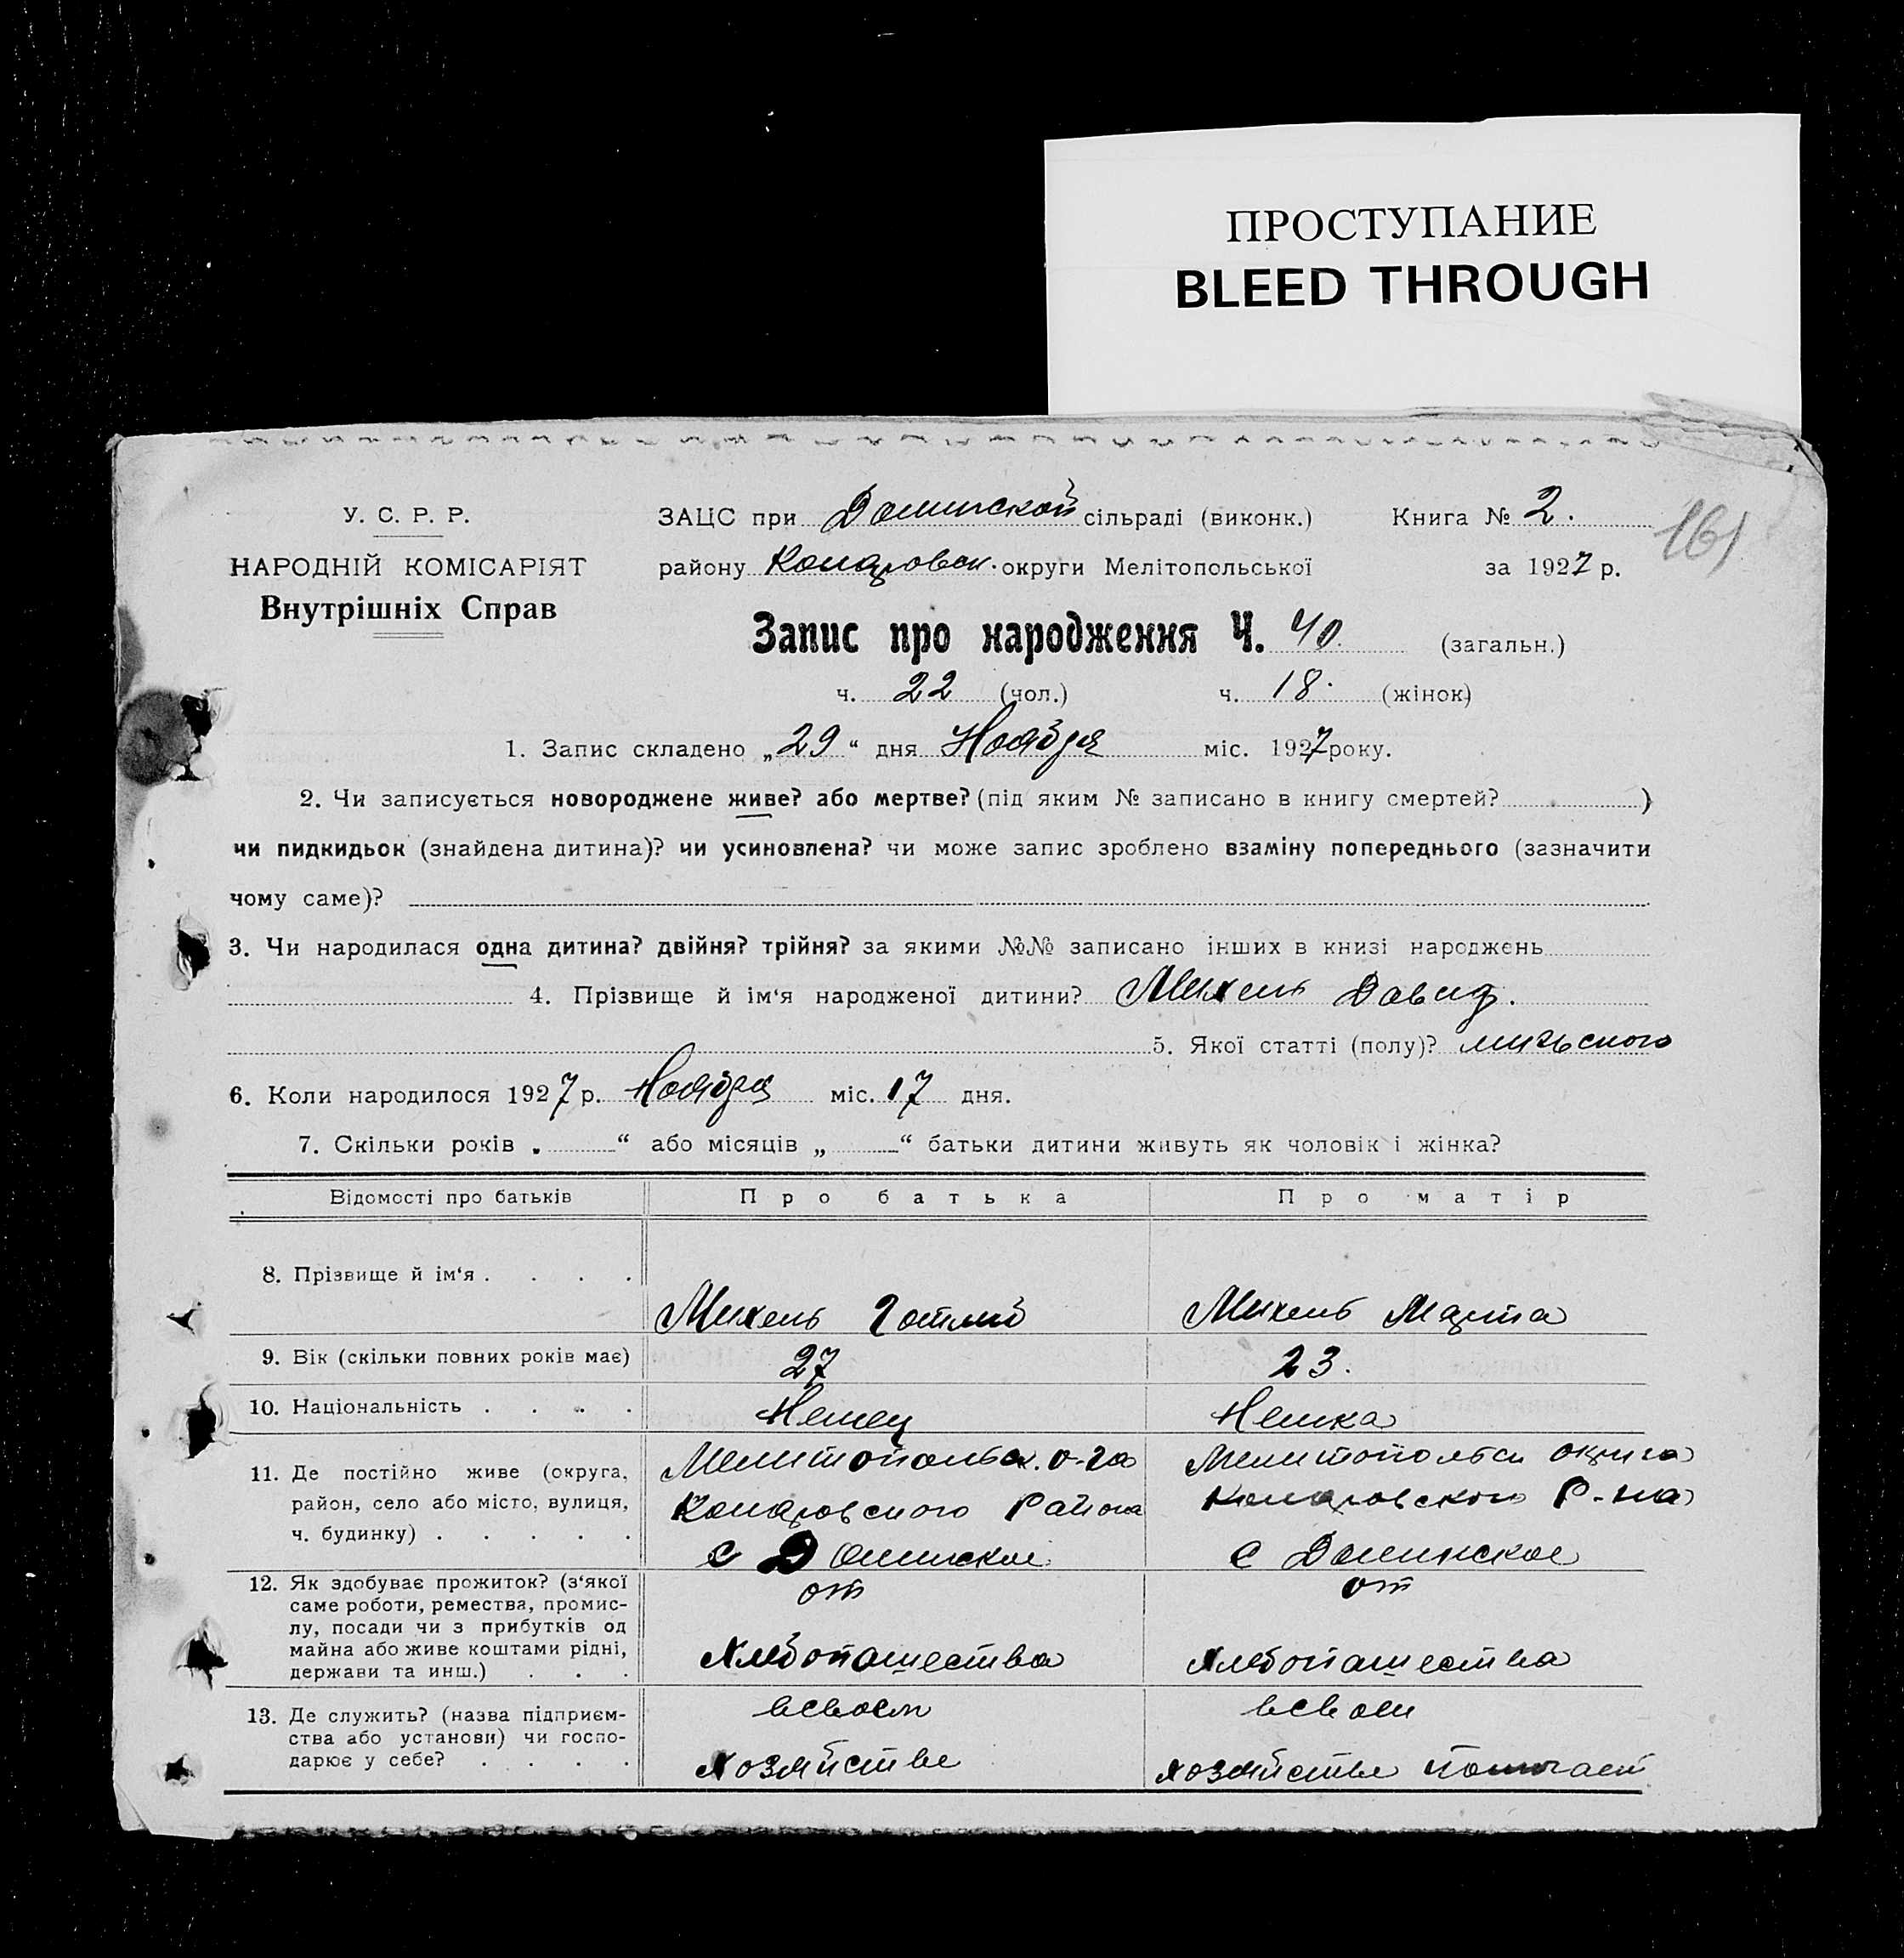 ПРОСТУПАНИЕ
BLEED THROUGH
У. С. Р. Р.
НАРОДНІЙ КОМІСАРІЯТ
Внутрішніх Справ
ЗАЦС при Долинской сільраді (виконк.) Книга № 2.
161
району Комаровск. округи Мелітопольської за 1927 р.
Запис про народження Ч. 40. (загальн.)
ч. 22 (чол.) ч. 18. (жінок)
1. Запис складено „29“ дня Ноября міс. 1927 року.
2. Чи записується новороджене живе? або мертве? (під яким № записано в книгу смертей? )
чи пидкидьок (знайдена дитина)? чи усиновлена? чи може запис зроблено взаміну попереднього (зазначити
чому саме)?
3. Чи народилася одна дитина? двійня? трійня? за якими №№ записано інших в книзі народжень
4. Прізвище й ім‘я народженої дитини? Михель Давид.
5. Якої статті (полу)? мужского
6. Коли народилося 1927 р. Ноября міс. 17 дня.
7. Скільки років „ “ або місяців „ “ батьки дитини живуть як чоловік і жінка?
Відомості про батьків Про батька Про матір
8. Прізвище й ім‘я . . . .
Михель Готлиб Михель Марта
9. Вік (скільки повних років має) 27 23.
10. Національність . . . . Немец Немка
11. Де постійно живе (округа,
район, село або місто, вулиця,
ч. будинку) . . . . .
Мелитопольск. о-га
Комаровского Района
с Долинское
Мелитопольск округа
Комаровского Р-на
с Долинское
12. Як здобуває прожиток? (з‘якої
саме роботи, ремества, промис-
лу, посади чи з прибутків од
майна або живе коштами рідні,
держави та инш.) . . .
от
Хлебопашества
от
Хлебопашества
13. Де служить? (назва підприєм-
ства або установи) чи госпо-
дарює у себе? . . . .
всвоем
хозяйстве
всвоем
хозяйстве помогает